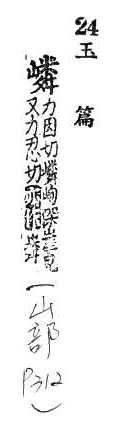 24 玉篇
嶙
力因切嶙峋崖皃
又力忍切
(山部 P312)